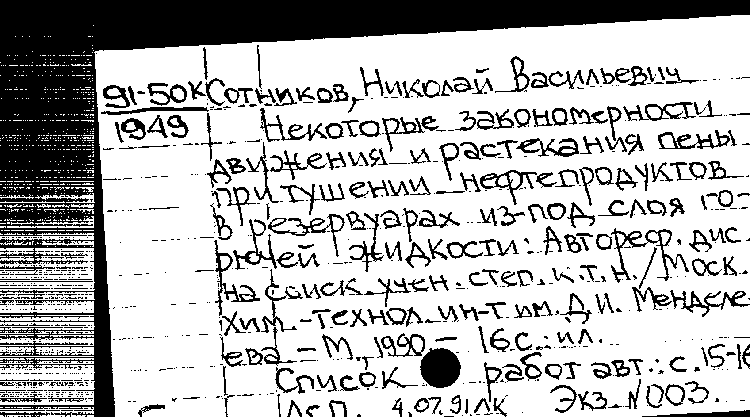 91-50к Сотников, Николай Васильевич
1949 Некоторые закономерности
движения и растекания пены
при тушении нефтепродуктов
в резервуарах из-под слоя го-
рючей жидкости: Автореф. дис.
на соиск. учен. степ. к.т.н. / Моск.
хим.-технол. ин-т им. Д.И. Менделе-
ева – М., 1990. – 16с.: ил.
Список работ авт.: с. 15-16
4.07.91 Экз. N003.